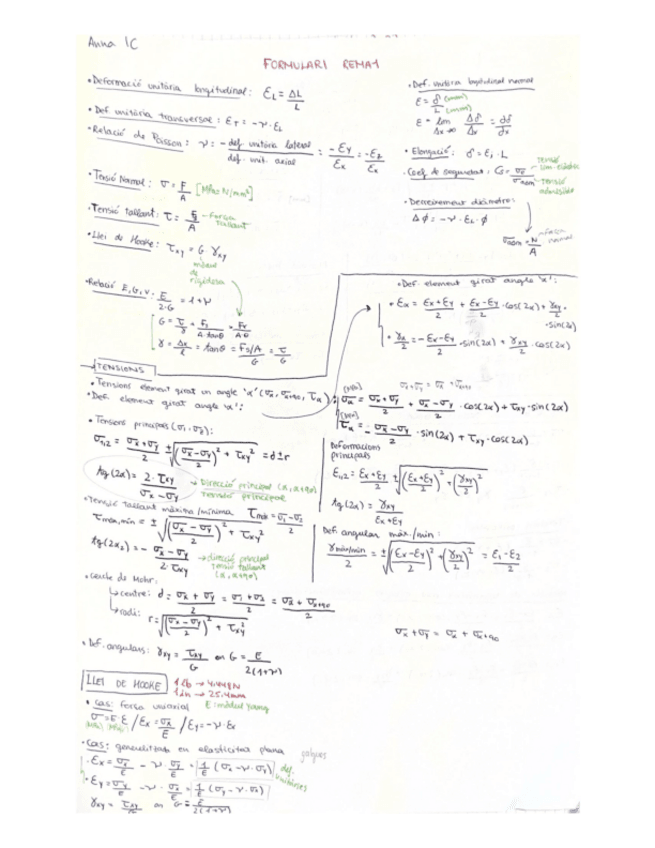 Anna 1C
FORMULARI REMA1
• Deformació unitària longitudinal: ε_L = ΔL / L
• Def unitària transversal: ε_T = -ν · ε_L
• Relació de Poisson: ν = - def. unitària lateral / def. unit. axial = -εy / εx = -εz / εx
• Tensió Normal: σ = F / A [MPa = N/mm²]
• Tensió tallant: τ = / A → força tallant
• Llei de Hooke: τxy = G · γxy
mòdul de rigidesa
• Relació E, G, ν: E / 2·G = 1 + ν
G = τ / γ = Fs / A·tanθ = Fs / A·θ
γ = Δx / L = tanθ = Fs/A / G = τ / G
• Def. unitària longitudinal normal
ε = δ (mm) / L (mm)
ε = lim Δx→0 Δδ / Δx = dδ / dx
• Elongació: δ = εi · L
• Coef. de seguretat: CS = / σnom
tensió
→ tensió admissible
• Decreixement diàmetre:
Δφ = -ν · ε_L · φ
σnom = N / A → força normal
• Def. element girat angle 'α':
• εα = εx + εy / 2 + εx - εy / 2 · cos(2α) + γxy / 2 · sin(2α)
• γα / 2 = - εx - εy / 2 · sin(2α) + γxy / 2 · cos(2α)
TENSIONS
• Tensions element girat un angle 'α' (σα, σα+90, τα):
• Def. element girat angle 'α':
σx + σy = σα + σα+90
σα = σx + σy / 2 + σx - σy / 2 · cos(2α) + τxy · sin(2α)
τα = - σx - σy / 2 · sin(2α) + τxy · cos(2α)
• Tensions principals (σ1, σ2):
σ1,2 = σx + σy / 2 ± √((σx - σy / 2)² + τxy²) = d ± r
tg(2α) = 2 · τxy / σx - σy → Direcció principal (α, α+90) Tensió principal
Deformacions principals
ε1,2 = εx + εy / 2 ± √((εx + εy / 2)² + (γxy / 2)²)
tg(2α) = γxy / εx + εy
• Tensió tallant màxima/mínima τmàx = σ1 - σ2 / 2
τmàx, mín = ± √((σx - σy / 2)² + τxy²)
tg(2α2) = - σx - σy / 2 · τxy → direcció principal tensió tallant (α, α+90)
Def angular màx./mín:
γmàx/mín / 2 = ± √((εx - εy / 2)² + (γxy / 2)²) = ε1 - ε2 / 2
• Cercle de Mohr:
↳ centre: d = σx + σy / 2 = σ1 + σ2 / 2 = σα + σα+90 / 2
↳ radi: r = √((σx - σy / 2)² + τxy²)
σx + σy = σα + σα+90
• Def. angulars: γxy = τxy / G on G = E / 2(1+ν)
LLEI DE HOOKE
1 lb → 4.448N
1 in → 25.4mm
• Cas: força uniaxial E: mòdul Young
σ = E · ε / εx = σx / E / εy = -ν · εx
• Cas: generalitzada en elasticitat plana galgues
• εx = σx / E - ν · σy / E = 1 / E (σx - ν · σy) def. unitàries
• εy = σy / E - ν · σx / E = 1 / E (σy - ν · σx)
γxy = τxy / G on G = E / 2(1+ν)